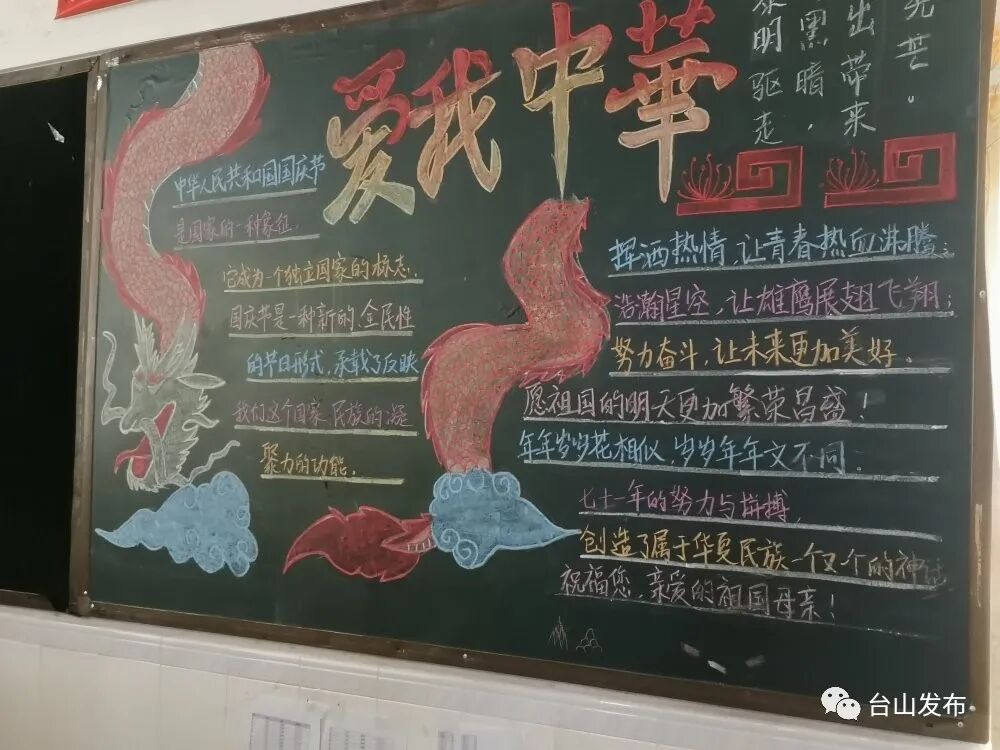 爱我中華
中华人民共和国国庆节
是国家的一种象征.
它成为一个独立国家的标志.
国庆节是一种新的、全民性
的节日形式,承载了反映
我们这个国家、民族的凝
聚力的功能.
光芒。
出带来
黑暗,
明驱走
挥洒热情,让青春热血沸腾;
浩瀚星空,让雄鹰展翅飞翔;
努力奋斗,让未来更加美好.
愿祖国的明天更加繁荣昌盛!
年年岁岁花相似,岁岁年年文不同.
七十一年的努力与拼搏,
创造了属于华夏民族一个又个的神
祝福您,亲爱的祖国母亲!
台山发布